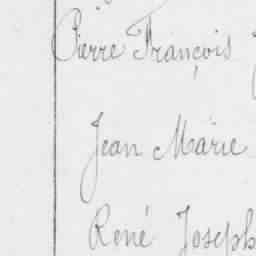 Pierre François
Jean Marie
René Joseph